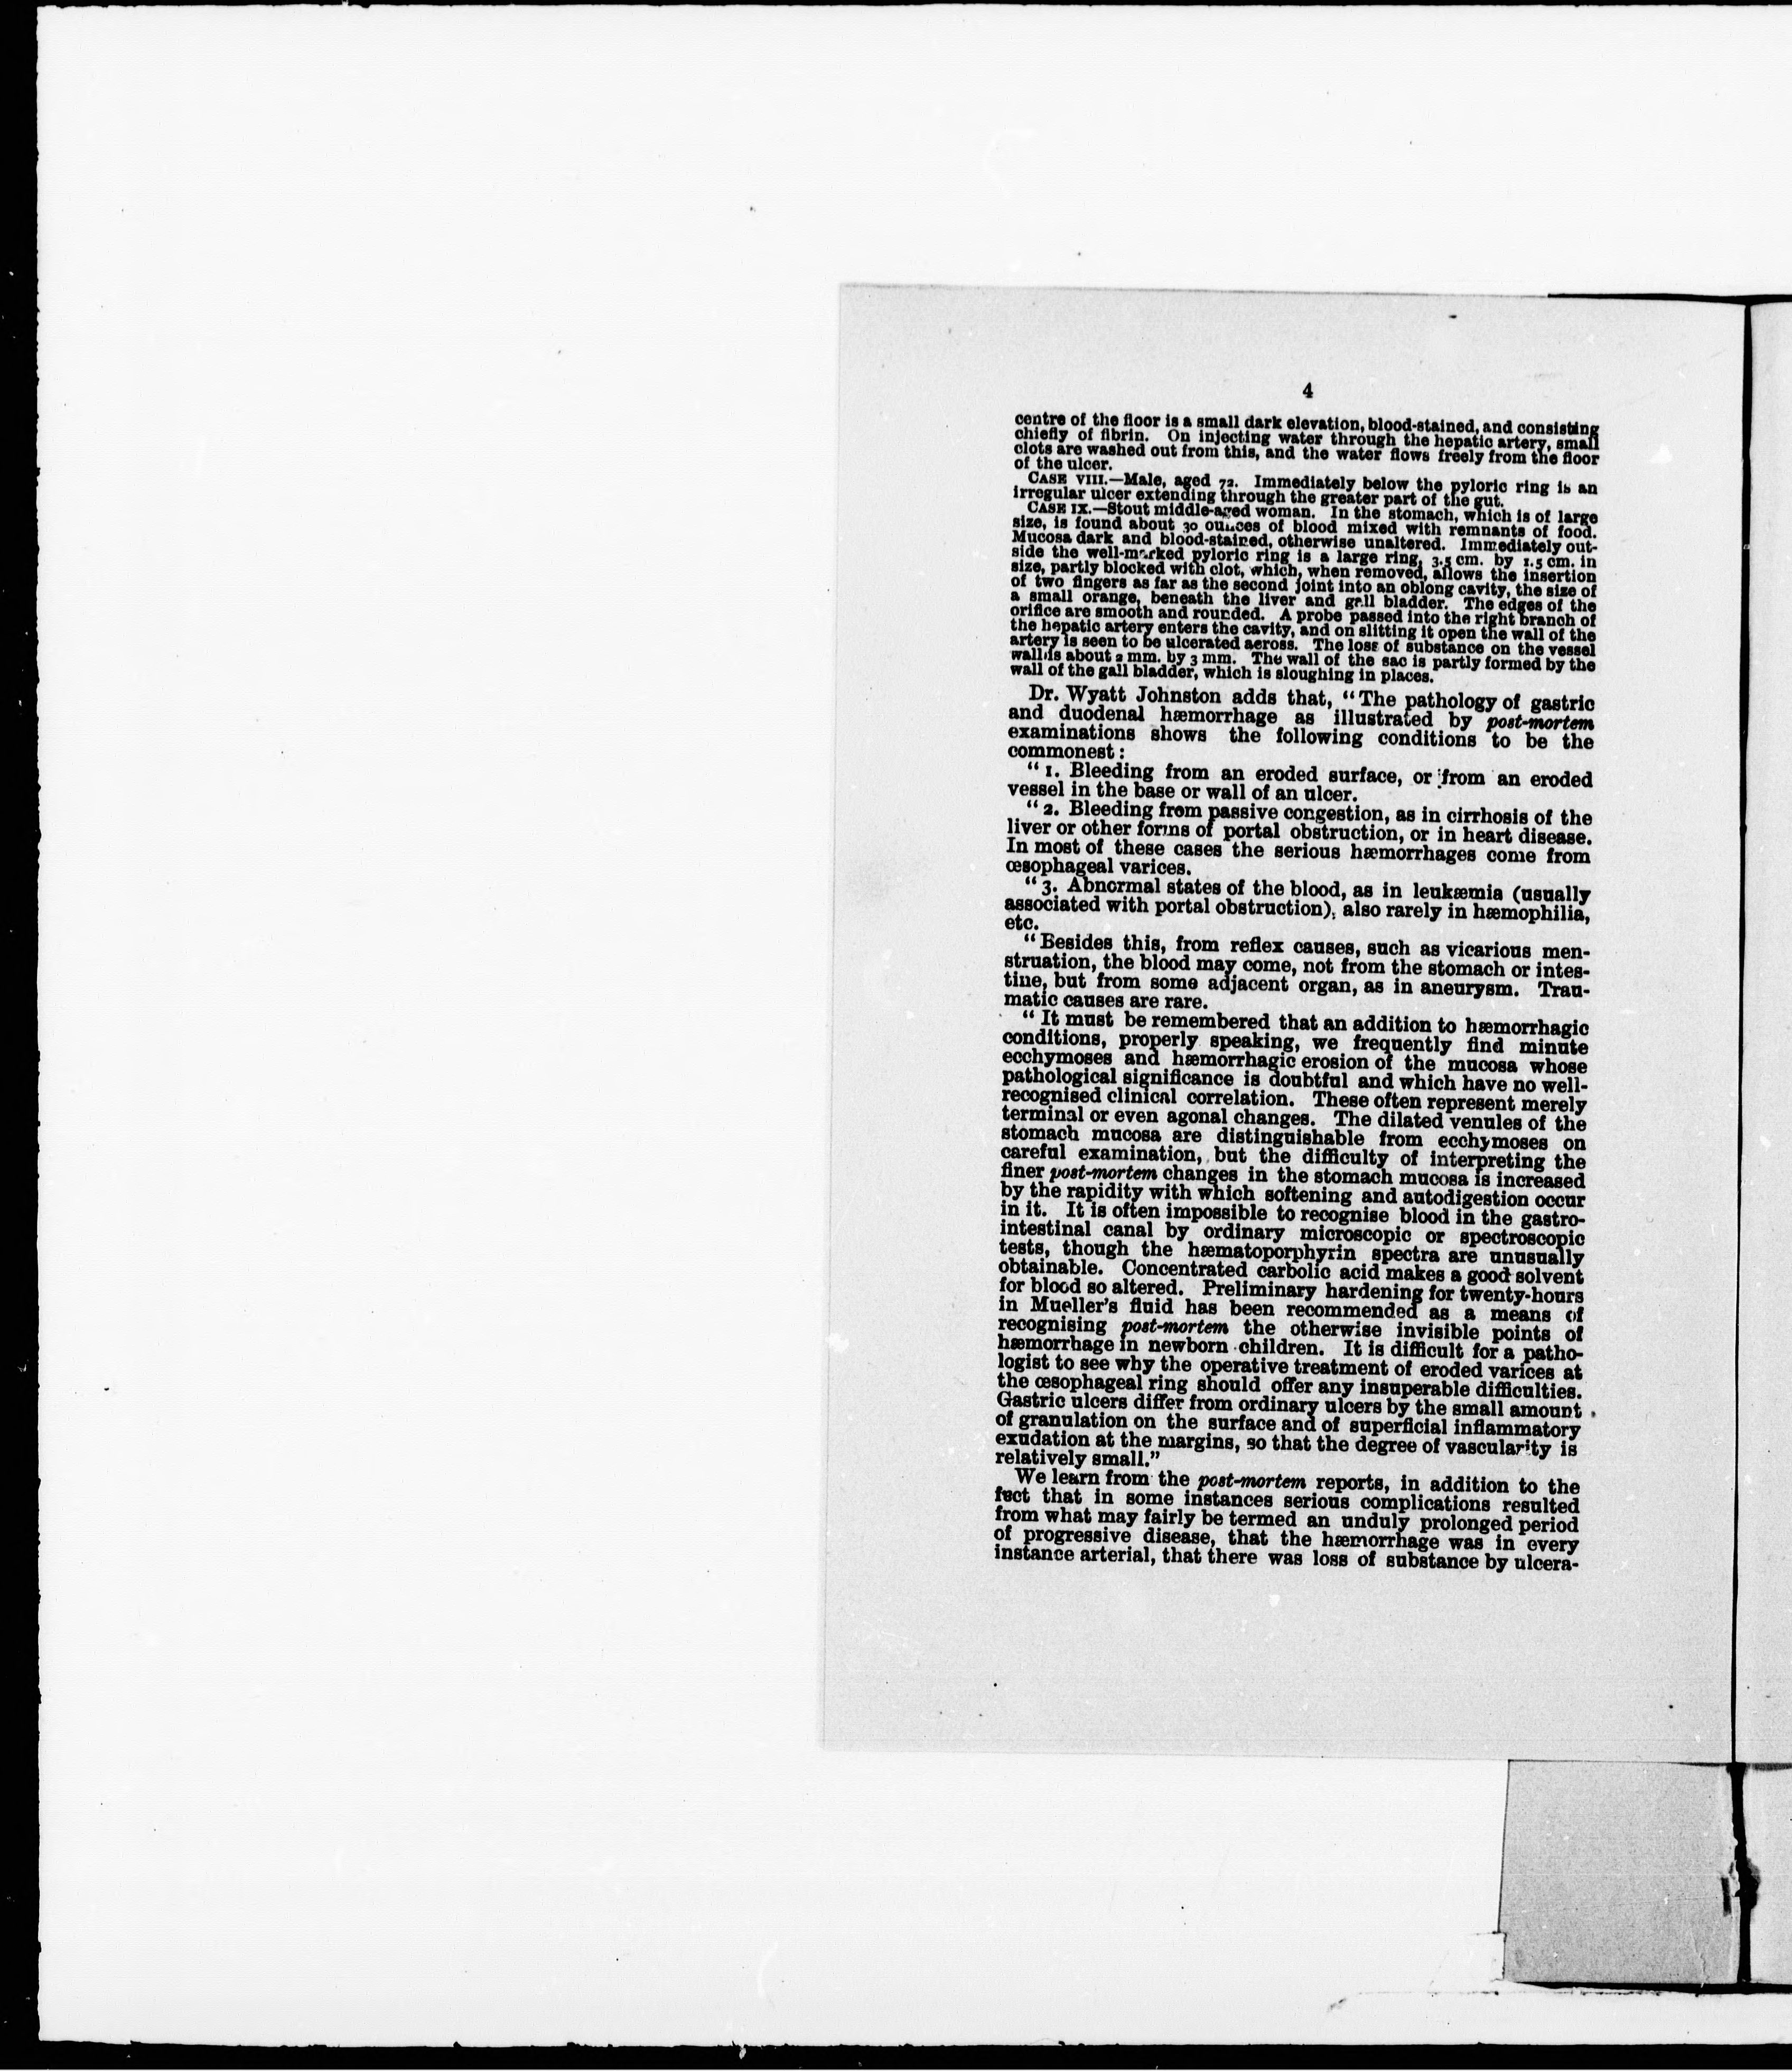 4
centre of the floor is a small dark elevation, blood-stained, and consisting
chiefly of fibrin. On injecting water through the hepatic artery, small
clots are washed out from this, and the water flows freely from the floor
of the ulcer.
CASE VIII.—Male, aged 72. Immediately below the pyloric ring is an
irregular ulcer extending through the greater part of the gut.
CASE IX.—Stout middle-aged woman. In the stomach, which is of large
size, is found about 30 ounces of blood mixed with remnants of food.
Mucosa dark and blood-stained, otherwise unaltered. Immediately out-
side the well-marked pyloric ring is a large ring, 3.5 cm. by 1.5 cm. in
size, partly blocked with clot, which, when removed, allows the insertion
of two fingers as far as the second joint into an oblong cavity, the size of
a small orange, beneath the liver and gall bladder. The edges of the
orifice are smooth and rounded. A probe passed into the right branch of
the hepatic artery enters the cavity, and on slitting it open the wall of the
artery is seen to be ulcerated across. The loss of substance on the vessel
wall is about 2 mm. by 3 mm. The wall of the sac is partly formed by the
wall of the gall bladder, which is sloughing in places.
Dr. Wyatt Johnston adds that, "The pathology of gastric
and duodenal hæmorrhage as illustrated by post-mortem
examinations shows the following conditions to be the
commonest:
"1. Bleeding from an eroded surface, or from an eroded
vessel in the base or wall of an ulcer.
"2. Bleeding from passive congestion, as in cirrhosis of the
liver or other forms of portal obstruction, or in heart disease.
In most of these cases the serious hæmorrhages come from
œsophageal varices.
"3. Abnormal states of the blood, as in leukæmia (usually
associated with portal obstruction), also rarely in hæmophilia,
etc.
"Besides this, from reflex causes, such as vicarious men-
struation, the blood may come, not from the stomach or intes-
tine, but from some adjacent organ, as in aneurysm. Trau-
matic causes are rare.
"It must be remembered that an addition to hæmorrhagic
conditions, properly speaking, we frequently find minute
ecchymoses and hæmorrhagic erosion of the mucosa whose
pathological significance is doubtful and which have no well-
recognised clinical correlation. These often represent merely
terminal or even agonal changes. The dilated venules of the
stomach mucosa are distinguishable from ecchymoses on
careful examination, but the difficulty of interpreting the
finer post-mortem changes in the stomach mucosa is increased
by the rapidity with which softening and autodigestion occur
in it. It is often impossible to recognise blood in the gastro-
intestinal canal by ordinary microscopic or spectroscopic
tests, though the hæmatoporphyrin spectra are unusually
obtainable. Concentrated carbolic acid makes a good solvent
for blood so altered. Preliminary hardening for twenty-hours
in Mueller's fluid has been recommended as a means of
recognising post-mortem the otherwise invisible points of
hæmorrhage in newborn children. It is difficult for a patho-
logist to see why the operative treatment of eroded varices at
the œsophageal ring should offer any insuperable difficulties.
Gastric ulcers differ from ordinary ulcers by the small amount
of granulation on the surface and of superficial inflammatory
exudation at the margins, so that the degree of vascularity is
relatively small."
We learn from the post-mortem reports, in addition to the
fact that in some instances serious complications resulted
from what may fairly be termed an unduly prolonged period
of progressive disease, that the hæmorrhage was in every
instance arterial, that there was loss of substance by ulcera-